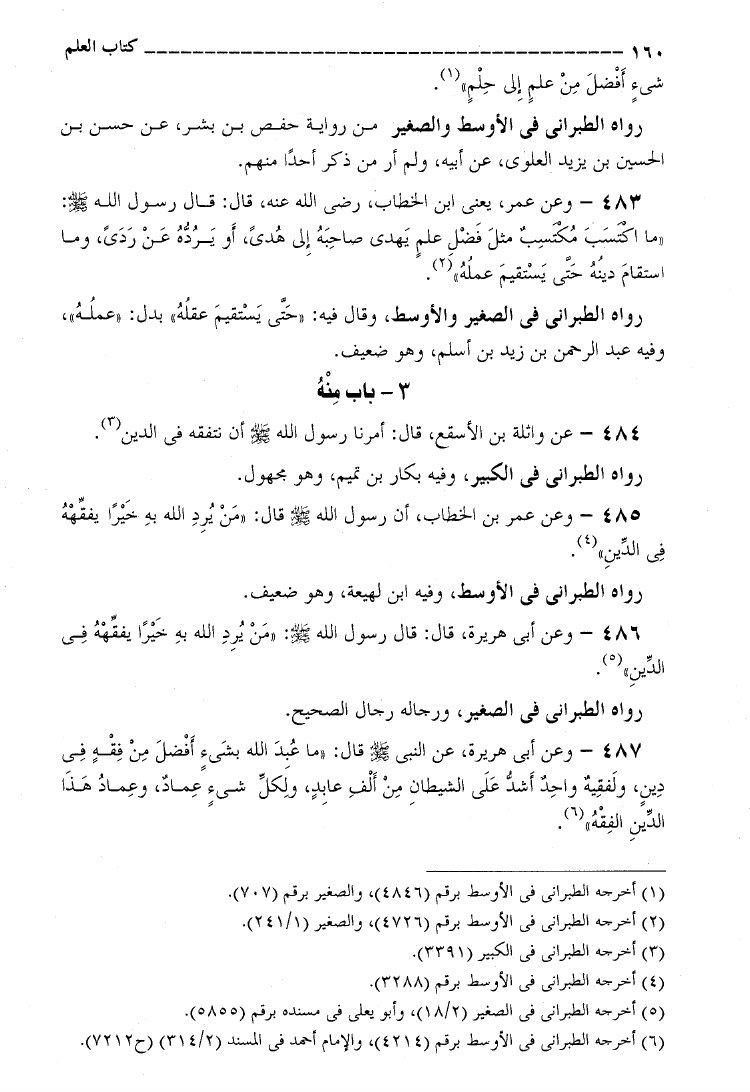 ١٦٠ ـــــــــــــــــــــــــــــــــــــــــــــــــــــــــــــــــــــــــــــــ كتاب العلم
شىءٍ أَفْضلَ مِنْ علمٍ إلى حِلْمٍ»(١).
رواه الطبرانى فى الأوسط والصغير من رواية حفص بن بشر، عن حسن بن
الحسين بن يزيد العلوى، عن أبيه، ولم أر من ذكر أحدًا منهم.
٤٨٣ – وعن عمر، يعنى ابن الخطاب، رضى الله عنه، قال: قال رسول الله ﷺ:
«ما اكْتَسَبَ مُكْتَسِبٌ مثلَ فَضْلِ علمٍ يَهدى صاحِبَهُ إلى هُدىً، أو يَرُدُّهُ عَنْ رَدَىً، وما
استقامَ دينُهُ حَتَّى يَسْتقيمَ عملُهُ»(٢).
رواه الطبرانى فى الصغير والأوسط، وقال فيه: «حَتَّى يَسْتقيمَ عقلُهُ» بدل: «عملُهُ»،
وفيه عبد الرحمن بن زيد بن أسلم، وهو ضعيف.
٣ – باب مِنْهُ
٤٨٤ – عن واثلة بن الأسقع، قال: أمرنا رسول الله ﷺ أن نتفقه فى الدين(٣).
رواه الطبرانى فى الكبير، وفيه بكار بن تميم، وهو مجهول.
٤٨٥ – وعن عمر بن الخطاب، أن رسول الله ﷺ قال: «مَنْ يُرِدِ الله بهِ خَيْرًا يفقِّهْهُ
فِى الدِّينِ»(٤).
رواه الطبرانى فى الأوسط، وفيه ابن لهيعة، وهو ضعيف.
٤٨٦ – وعن أبى هريرة، قال: قال رسول الله ﷺ: «مَنْ يُرِدِ الله بهِ خَيْرًا يفقِّهْهُ فِى
الدِّينِ»(٥).
رواه الطبرانى فى الصغير، ورجاله رجال الصحيح.
٤٨٧ – وعن أبى هريرة، عن النبى ﷺ قال: «ما عُبِدَ الله بشَىءٍ أَفْضلَ مِنْ فِقْهٍ فِى
دِينٍ، ولَفقِيهٌ واحِدٌ أشدُّ عَلَى الشيطانِ مِنْ أَلْفِ عابِدٍ، ولِكلِّ شىءٍ عِمادٌ، وعِمادُ هَذَا
الدِّينِ الفِقْهُ»(٦).
(١) أخرجه الطبرانى فى الأوسط برقم (٤٨٤٦)، والصغير برقم (٧٠٧).
(٢) أخرجه الطبرانى فى الأوسط برقم (٤٧٢٦)، والصغير (٢٤١/١).
(٣) أخرجه الطبرانى فى الكبير (٣٣٩١).
(٤) أخرجه الطبرانى فى الأوسط برقم (٣٢٨٨).
(٥) أخرجه الطبرانى فى الصغير (١٨/٢)، وأبو يعلى فى مسنده برقم (٥٨٥٥).
(٦) أخرجه الطبرانى فى الأوسط برقم (٤٢١٤)، والإمام أحمد فى المسند (٣١٤/٢) (ح٧٢١٢).